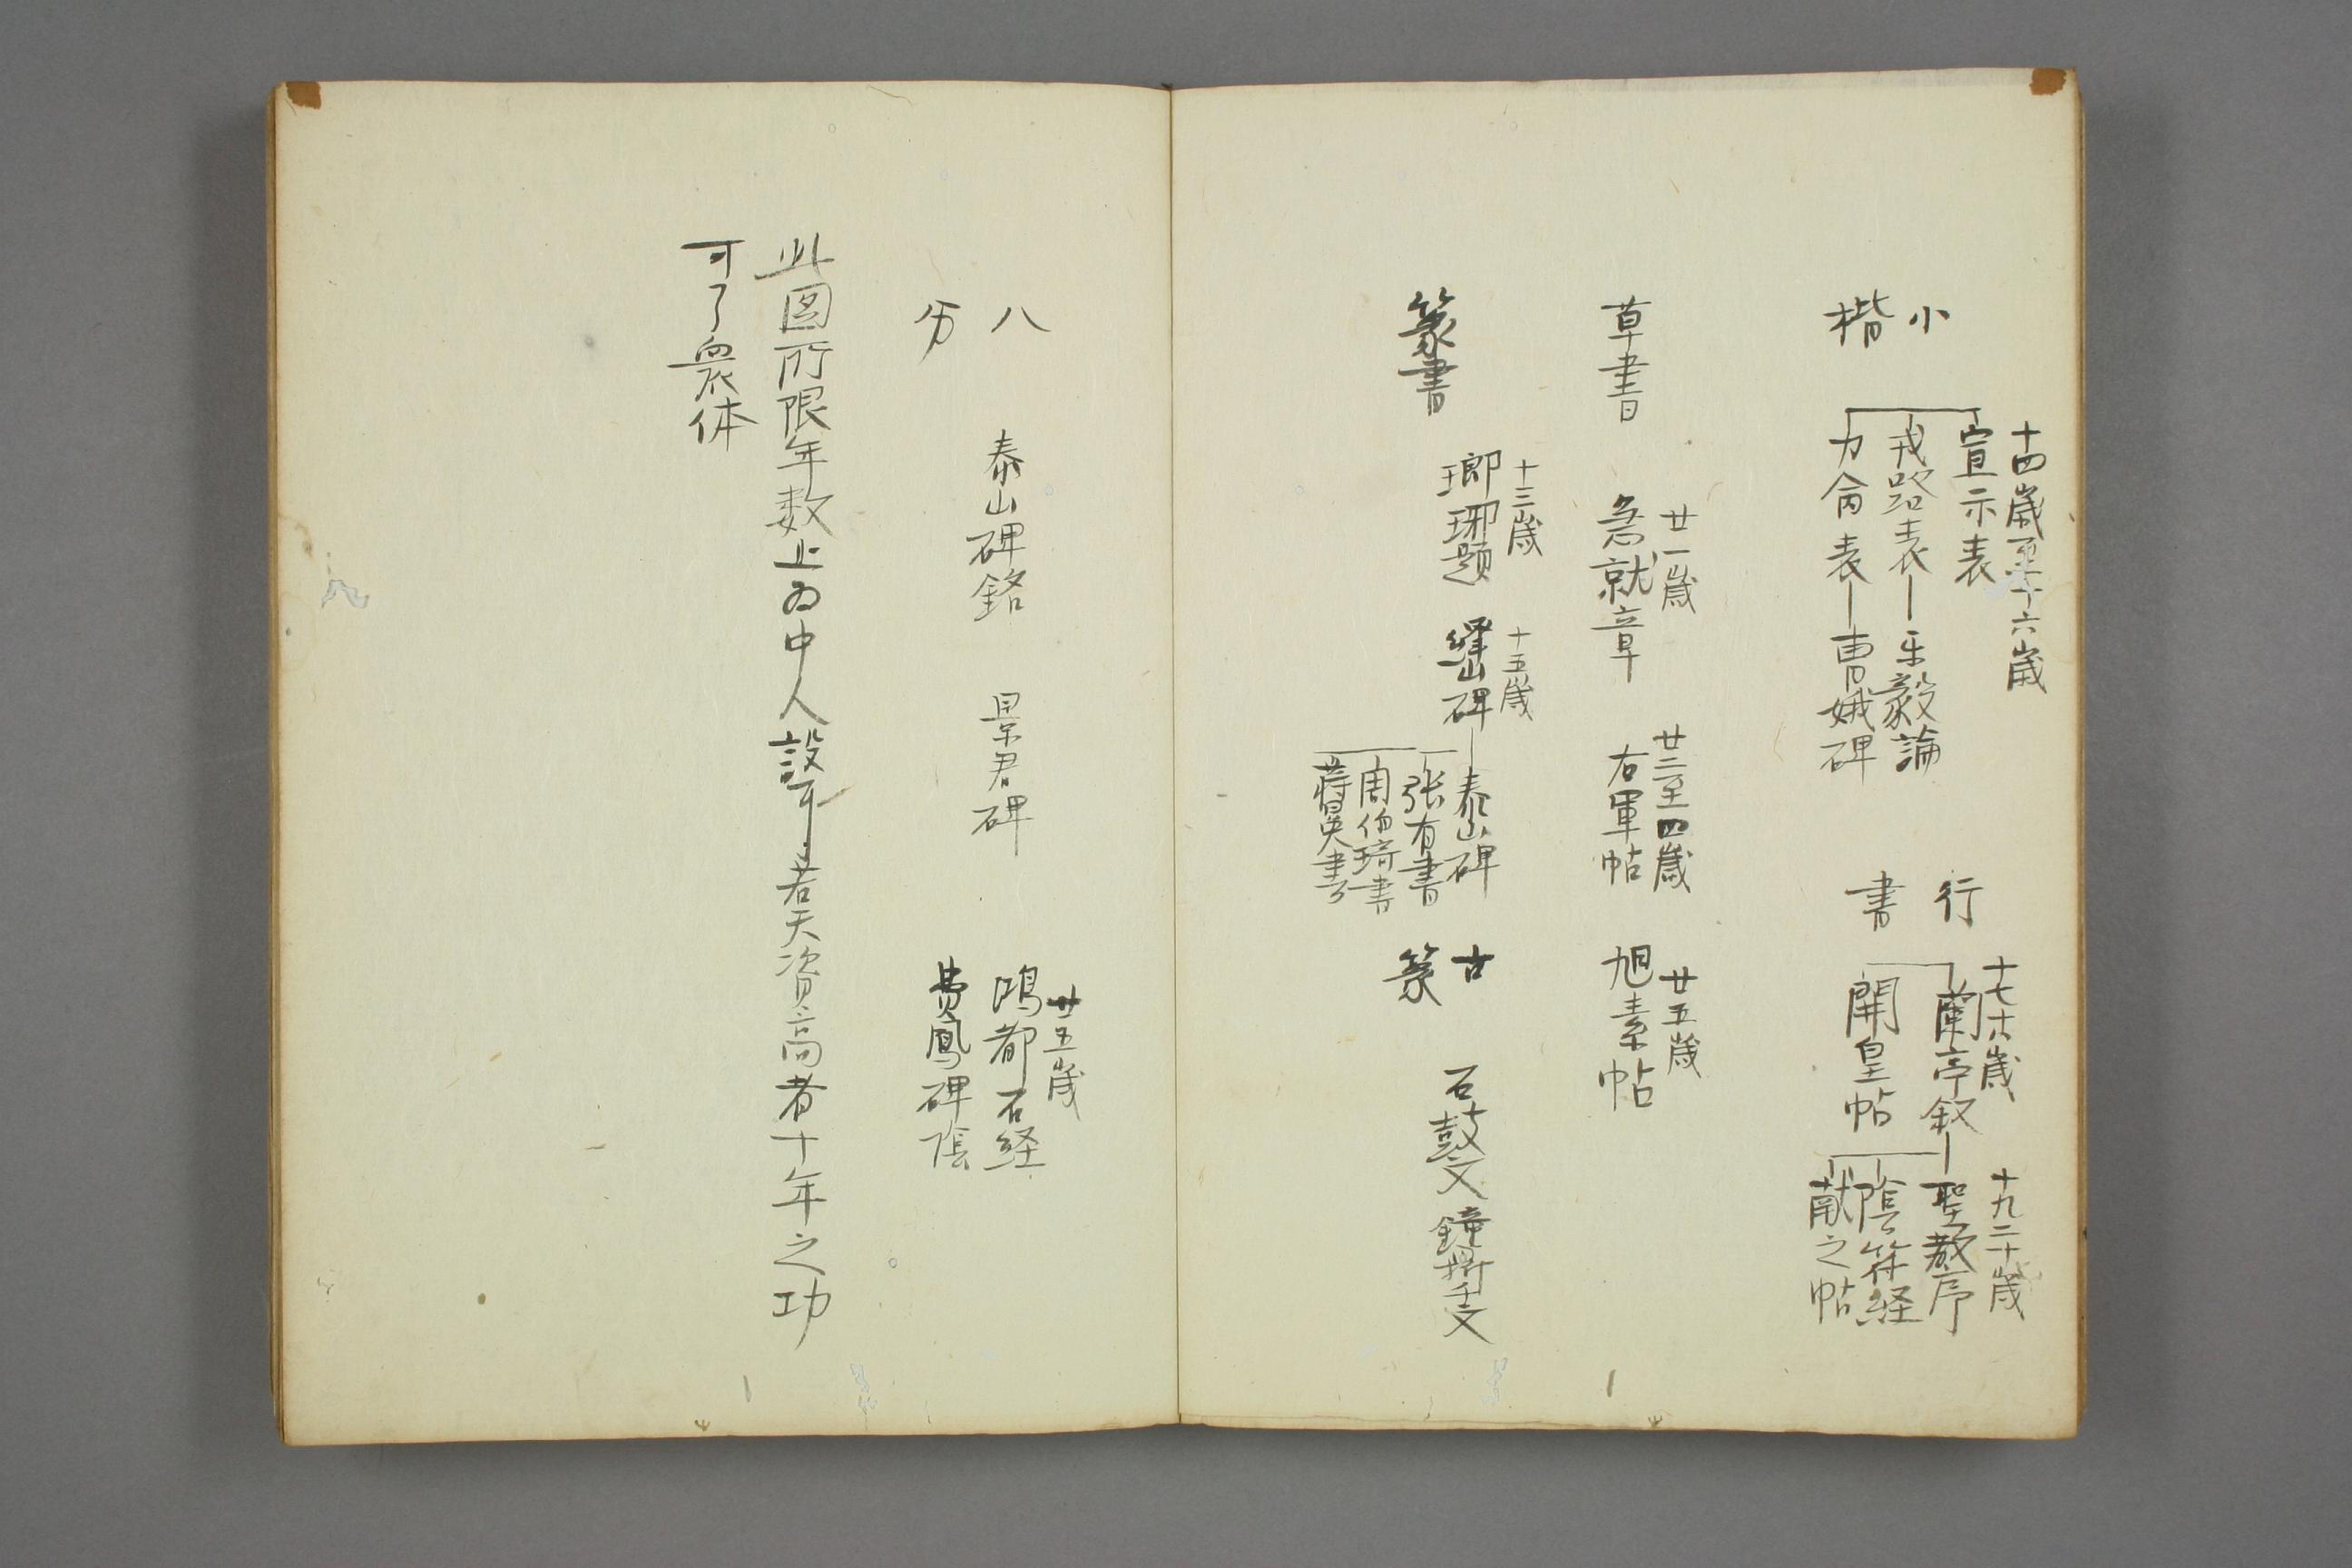 小
楷
十四歳至十六歳
宣示表
戎路表―乐毅論
力命表―曹娥碑
行
書
十七十八歳
蘭亭叙
開皇帖
十九二十歳
聖教序
陰符経
献之帖
草書
廿一歳
急就章
廿二至四歳
右軍帖
廿五歳
旭素帖
篆書
十三歳
瑯琊題
十五歳
嶧山碑―泰山碑
張有書
周伯琦書
蒋冕書
古
篆
石鼓文
鐘鼎千文
八
分
泰山碑銘
景君碑
廿五歳
鴻都石経
費鳳碑陰
此図所限年数止为中人設耳若天資高者十年之功
可了衆体